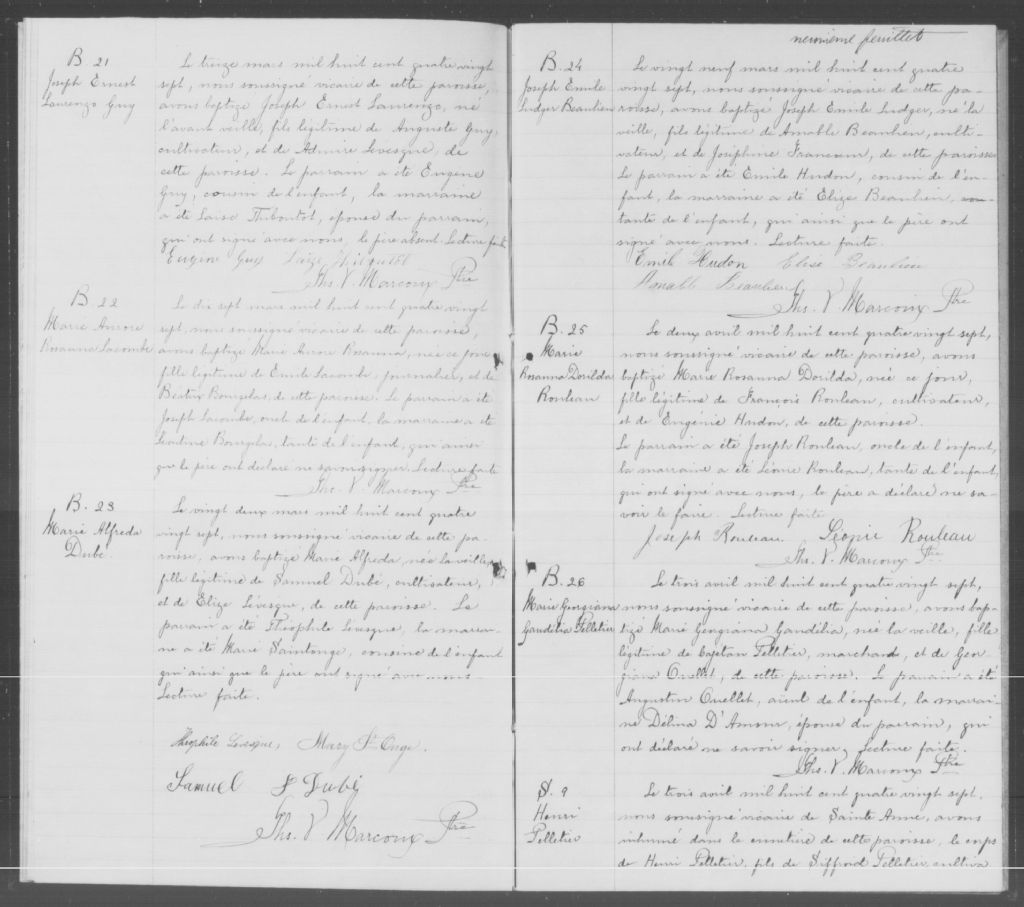 B. 21
Joseph Ernest
Laurenzo Guy
Le treize mars mil huit cent quatre vingt
sept, nous soussigné vicaire de cette paroisse,
avons baptizé Joseph Ernest Laurenzo, né
l'avant veille, fils légitime de Auguste Guy,
cultivateur, et de Admire Levesque, de
cette paroisse. Le parrain a été Eugene
Guy, cousin de l'enfant, la marraine
a été Laise Thiboutot, epouse du parrain,
qui ont signé avec nous, le père absent. Lecture faite
Eugene Guy Laize Thiboutot
Ths. V. Marcoux Ptre
B. 22
Marie Aurore
Rosanna Lacombe
Le dix sept mars mil huit cent quatre vingt
sept, nous soussigné vicaire de cette paroisse,
avons baptizé Marie Aurore Rosanna, née ce jour
fille légitime de Emile Lacombe, journalier, et de
Bourgelas, de cette paroisse. Le parrain a été
Joseph Lacombe, oncle de l'enfant, la marraine a été
Bourgelas, tante de l'enfant, qui ainsi
que le père ont déclaré ne savoir signer. Lecture faite
Ths. V. Marcoux Ptre
B. 23
Marie Alfreda
Dubé.
Le vingt deux mars mil huit cent quatre
vingt sept, nous soussigné vicaire de cette pa-
roisse, avons baptizé Marie Alfreda, née la veille,
fille légitime de Samuel Dubé, cultivateur,
et de Elize Lévesque, de cette paroisse. Le
parrain a été Théophile Lévesque, la marrai-
ne a été Marie Saintonge, cousine de l'enfant
qui ainsi que le père ont signé avec nous.
Lecture faite.
Theophile Levesque, Mary St Onge.
Samuel Dubé
Ths. V. Marcoux Ptre
neuvième feuillet
B. 24
Joseph Emile
Ludger Beaulieu
Le vingt neuf mars mil huit cent quatre
vingt sept, nous soussigné vicaire de cette pa-
roisse, avons baptizé Joseph Emile Ludger, né la
veille, fils légitime de Amable Beaulieu, culti-
vateur, et de Joséphine Francoeur, de cette paroisse
Le parrain a été Emile Hudon, cousin de l'en-
fant, la marraine a été Elize Beaulieu,
tante de l'enfant, qui ainsi que le père ont
signé avec nous. Lecture faite.
Emile Hudon Elise Beaulieu
Beaulieu
Ths. V. Marcoux Ptre
B. 25
Marie
Rosanna Dorilda
Rouleau
Le deux avril mil huit cent quatre vingt sept,
nous soussigné vicaire de cette paroisse, avons
baptizé Marie Rosanna Dorilda, née ce jour,
fille légitime de François Rouleau, cultivateur,
et de Eugénie Hudon, de cette paroisse.
Le parrain a été Joseph Rouleau, oncle de l'enfant,
la marraine a été Léonie Rouleau, tante de l'enfant,
qui ont signé avec nous, le père a déclaré ne sa-
voir le faire. Lecture faite
Joseph Rouleau. Léonie Rouleau
Ths. V. Marcoux Ptre
B. 26
Marie Georgiana
Gaudélia Pelletier
Le trois avril mil huit cent quatre vingt sept,
nous soussigné vicaire de cette paroisse, avons bap-
tizé Marie Georgiana Gaudélia, née la veille, fille
légitime de Cajetan Pelletier, marchand, et de Geor-
giana Ouellet, de cette paroisse. Le parrain a été
Augustin Ouellet, aïeul de l'enfant, la marrai-
ne Délina D'Amour, épouse du parrain, qui
ont déclaré ne savoir signer, Lecture faite.
Ths. V. Marcoux Ptre
S. 9
Henri
Pelletier
Le trois avril mil huit cent quatre vingt sept.
nous soussigné vicaire de Sainte Anne, avons
inhumé dans le cimetière de cette paroisse, le corps
de Henri Pelletier, fils de Siffroid Pelletier, cultiva